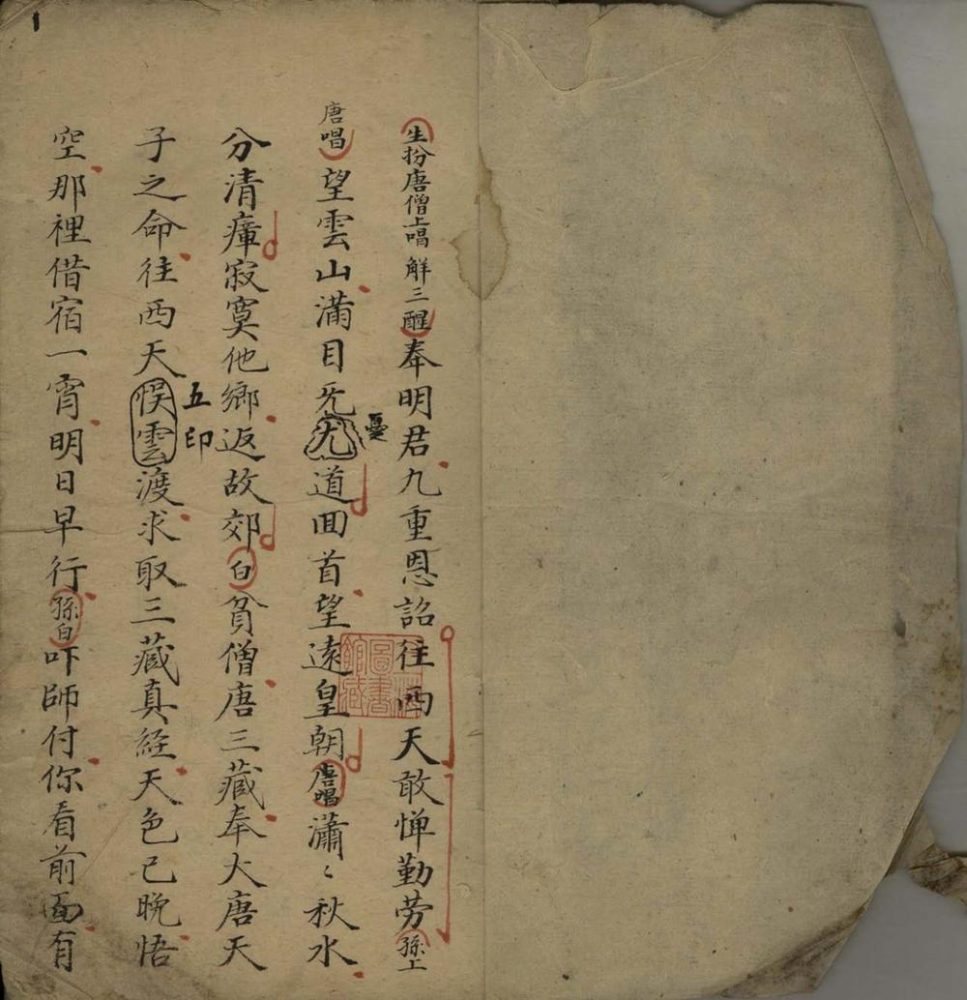 生扮唐僧上唱 解三醒 奉明君九重恩詔往西天敢憚勤劳孫上
唐唱 望雲山滿目旡尤道囬首望遠皇朝唐唱瀟〻秋水
憂
分清瘴寂寞他鄉返故郊白貧僧唐三藏奉大唐天
五印
子之命往西天悮雲渡求取三藏真経天色已晚悟
空那裡借宿一宵明日早行孫白吓師付你看前面有
圖書館藏